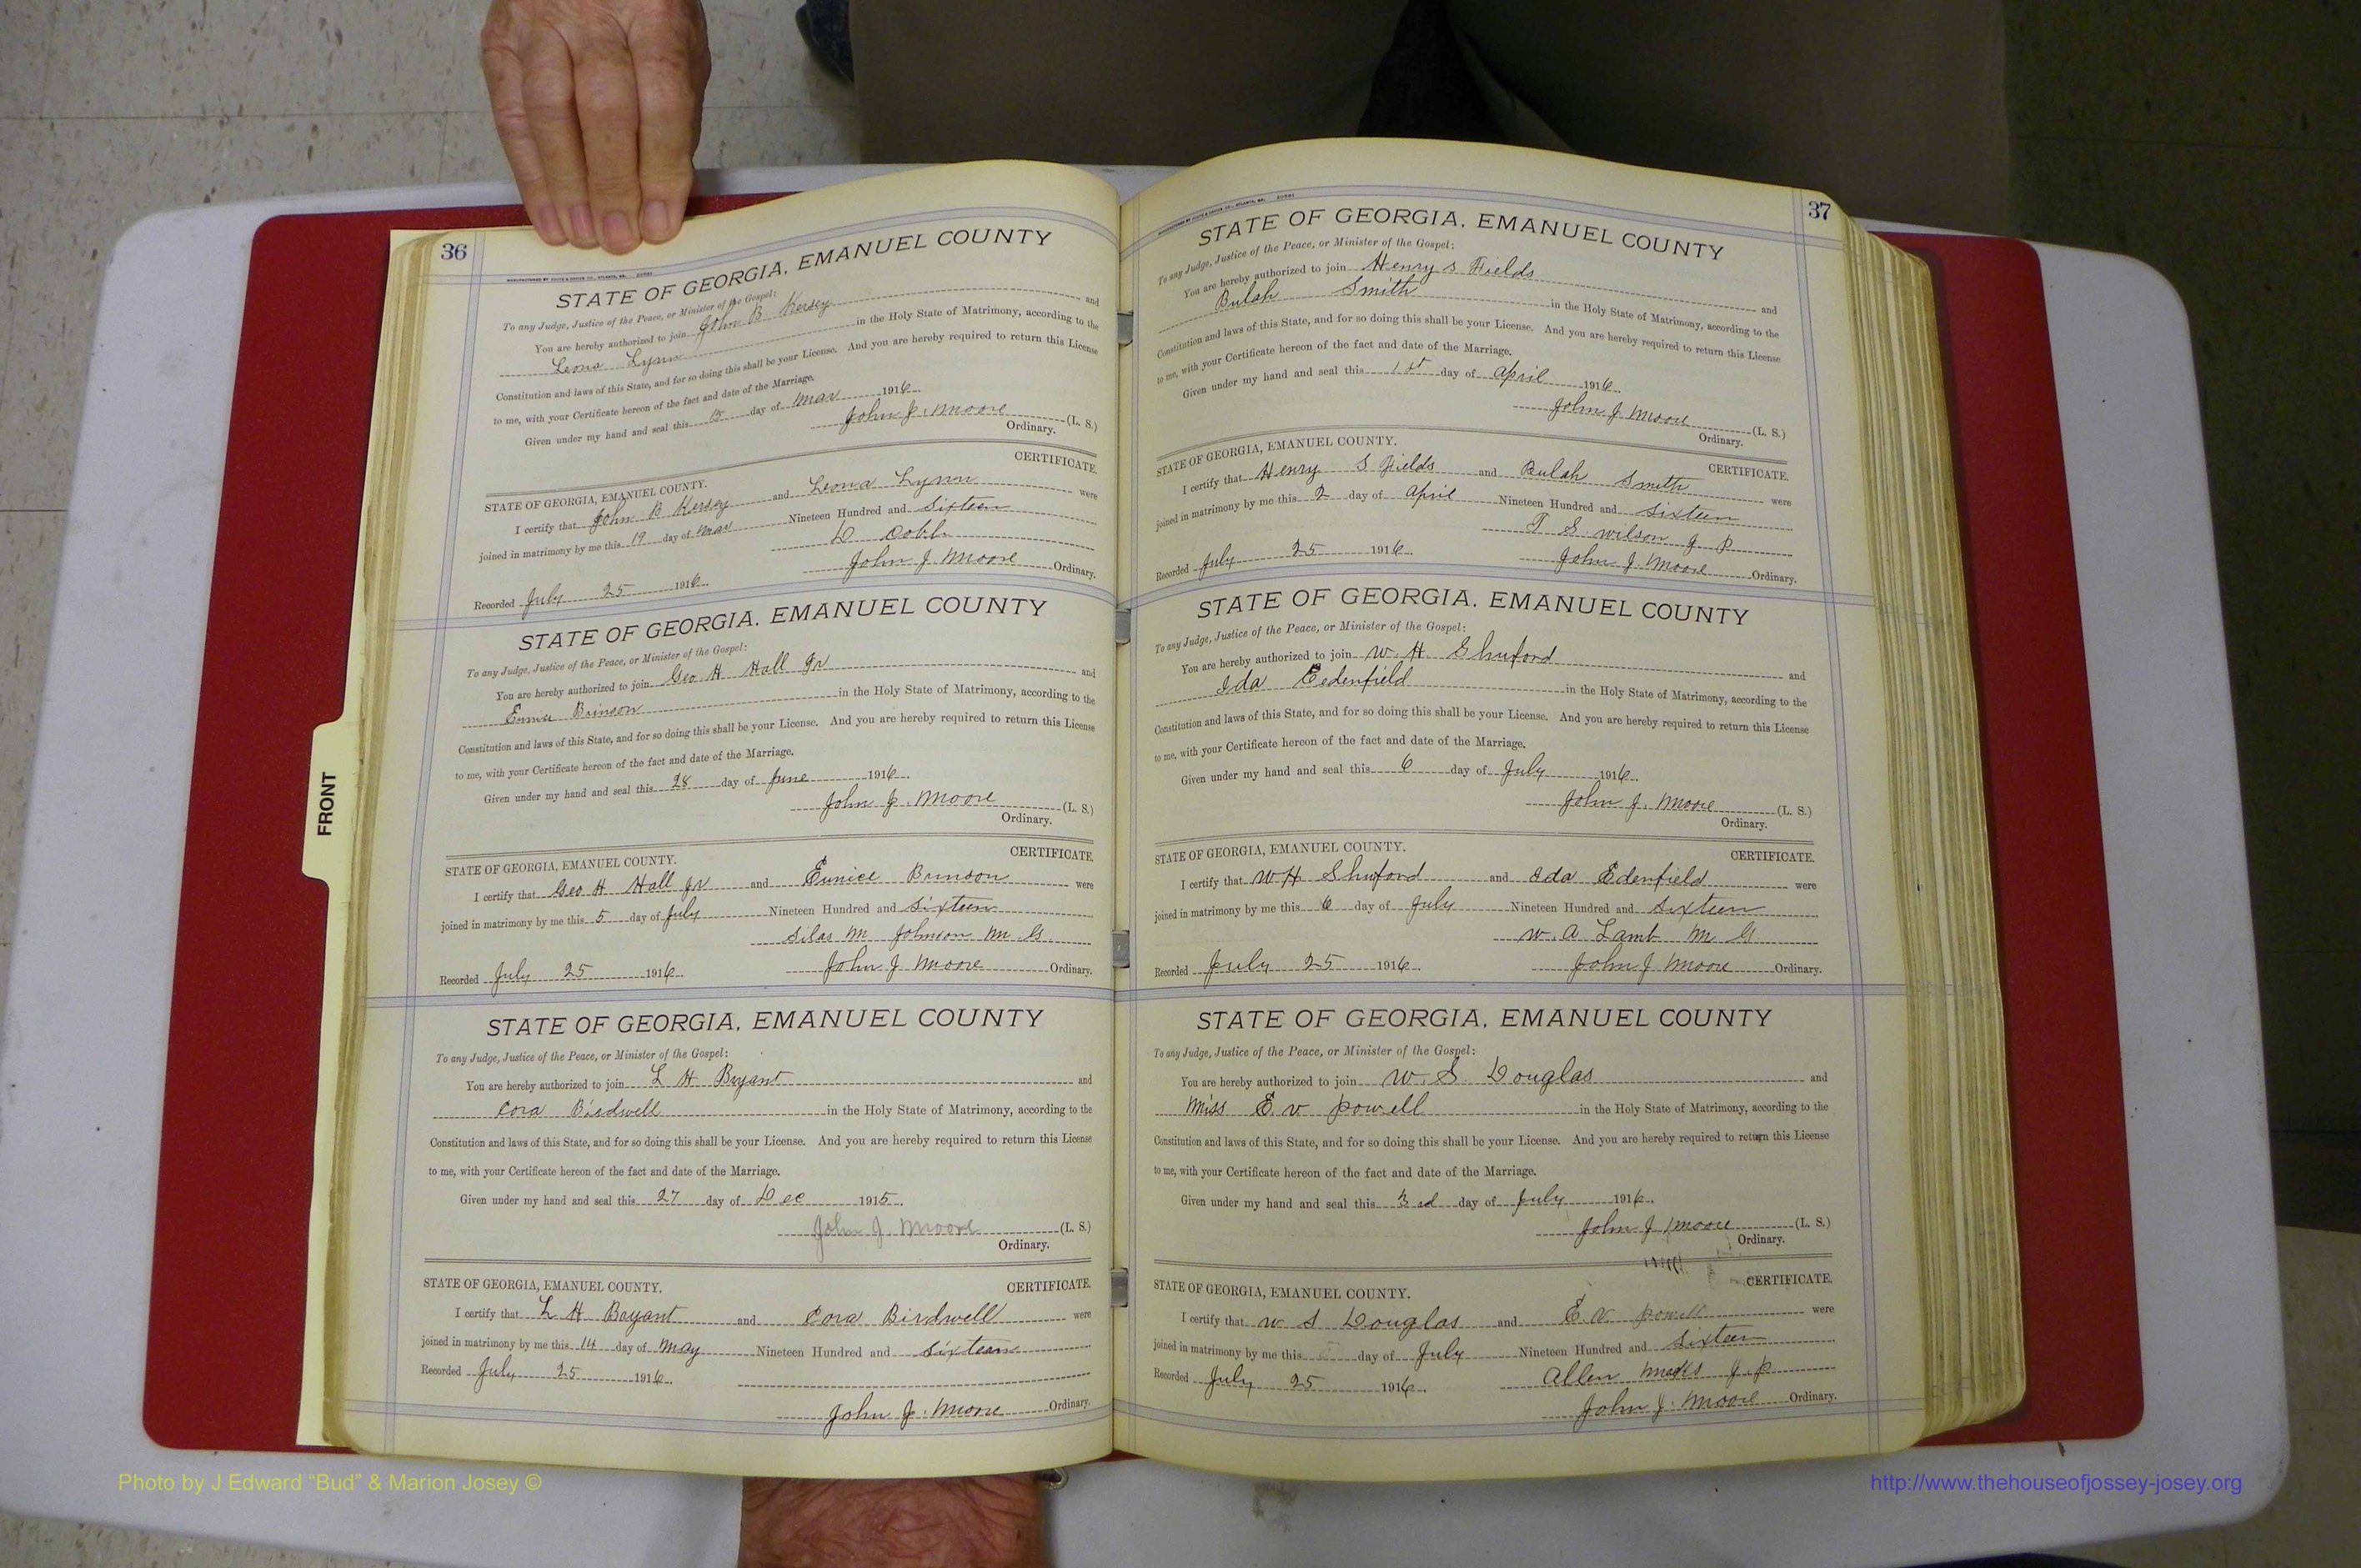 36
STATE OF GEORGIA, EMANUEL COUNTY
To any Judge, Justice of the Peace, or Minister of the Gospel:
You are hereby authorized to join John B Kersey and
Leona Lynn in the Holy State of Matrimony, according to the
Constitution and laws of this State, and for so doing this shall be your License. And you are hereby required to return this License
to me, with your Certificate hereon of the fact and date of the Marriage.
Given under my hand and seal this 15 day of Mar 1916.
John J. Moore (L. S.)
Ordinary.
CERTIFICATE.
STATE OF GEORGIA, EMANUEL COUNTY.
I certify that John B Kersey and Leona Lynn were
joined in matrimony by me this 19 day of Mar Nineteen Hundred and Sixteen
D Cobb
Recorded July 25 1916. John J. Moore Ordinary.
STATE OF GEORGIA, EMANUEL COUNTY
To any Judge, Justice of the Peace, or Minister of the Gospel:
You are hereby authorized to join Geo H Hall Jr and
Eunice Brinson in the Holy State of Matrimony, according to the
Constitution and laws of this State, and for so doing this shall be your License. And you are hereby required to return this License
to me, with your Certificate hereon of the fact and date of the Marriage.
Given under my hand and seal this 28 day of June 1916.
John J. Moore (L. S.)
Ordinary.
CERTIFICATE.
STATE OF GEORGIA, EMANUEL COUNTY.
I certify that Geo H Hall Jr and Eunice Brinson were
joined in matrimony by me this 5 day of July Nineteen Hundred and Sixteen
Silas M Johnson M G
Recorded July 25 1916. John J Moore Ordinary.
STATE OF GEORGIA, EMANUEL COUNTY
To any Judge, Justice of the Peace, or Minister of the Gospel:
You are hereby authorized to join L H Bryant and
Cora Birdwell in the Holy State of Matrimony, according to the
Constitution and laws of this State, and for so doing this shall be your License. And you are hereby required to return this License
to me, with your Certificate hereon of the fact and date of the Marriage.
Given under my hand and seal this 27 day of Dec 1915.
John J. Moore (L. S.)
Ordinary.
STATE OF GEORGIA, EMANUEL COUNTY. CERTIFICATE.
I certify that L H Bryant and Cora Birdwell were
joined in matrimony by me this 14 day of May Nineteen Hundred and Sixteen
Recorded July 25 1916.
John J. Moore Ordinary.
37
STATE OF GEORGIA, EMANUEL COUNTY
To any Judge, Justice of the Peace, or Minister of the Gospel:
You are hereby authorized to join Henry S Fields and
Bulah Smith in the Holy State of Matrimony, according to the
Constitution and laws of this State, and for so doing this shall be your License. And you are hereby required to return this License
to me, with your Certificate hereon of the fact and date of the Marriage.
Given under my hand and seal this 1st day of April 1916.
John J Moore (L. S.)
Ordinary.
STATE OF GEORGIA, EMANUEL COUNTY. CERTIFICATE.
I certify that Henry S Fields and Bulah Smith were
joined in matrimony by me this 2 day of April Nineteen Hundred and Sixteen
T S Wilson J P
Recorded July 25 1916. John J. Moore Ordinary.
STATE OF GEORGIA, EMANUEL COUNTY
To any Judge, Justice of the Peace, or Minister of the Gospel:
You are hereby authorized to join W. H Shuford and
Ida Eedenfield in the Holy State of Matrimony, according to the
Constitution and laws of this State, and for so doing this shall be your License. And you are hereby required to return this License
to me, with your Certificate hereon of the fact and date of the Marriage.
Given under my hand and seal this 6 day of July 1916.
John J. Moore (L. S.)
Ordinary.
STATE OF GEORGIA, EMANUEL COUNTY. CERTIFICATE.
I certify that W H Shuford and Ida Edenfield were
joined in matrimony by me this 6 day of July Nineteen Hundred and Sixteen
W. A. Lamb M G
Recorded July 25 1916. John J Moore Ordinary.
STATE OF GEORGIA, EMANUEL COUNTY
To any Judge, Justice of the Peace, or Minister of the Gospel:
You are hereby authorized to join W. S. Douglas and
Miss E v Powell in the Holy State of Matrimony, according to the
Constitution and laws of this State, and for so doing this shall be your License. And you are hereby required to return this License
to me, with your Certificate hereon of the fact and date of the Marriage.
Given under my hand and seal this 3rd day of July 1916.
John J Moore (L. S.)
Ordinary.
STATE OF GEORGIA, EMANUEL COUNTY. CERTIFICATE.
I certify that W S Douglas and E. V. Powell were
joined in matrimony by me this day of July Nineteen Hundred and Sixteen
Allen J. P
Recorded July 25 1916.
John J. Moore Ordinary.
FRONT
Photo by J Edward “Bud” & Marion Josey ©
http://www.thehouseofjossey-josey.org